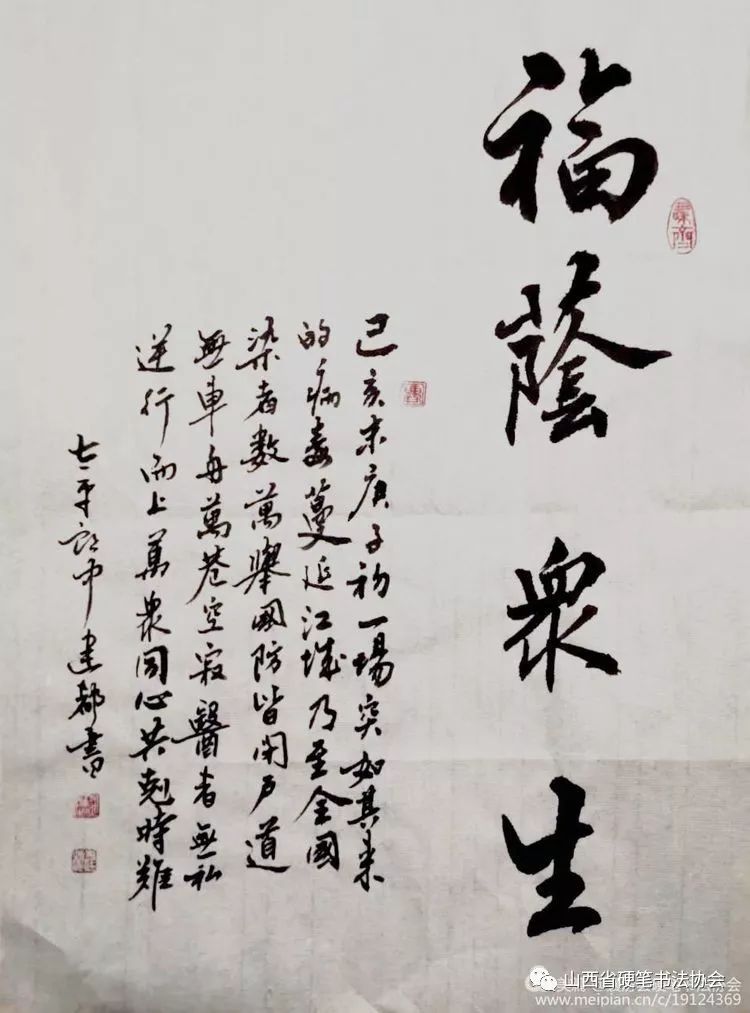 福蔭衆生
己亥末庚子初一場突如其来
的病毒蔓延江城乃至全國
染者数萬舉國防皆閉户道
無車舟萬巷空寂醫者無私
逆行而上萬衆同心共克時難
建都書
山西省硬笔书法协会
www.meipian.cn/c/19124369